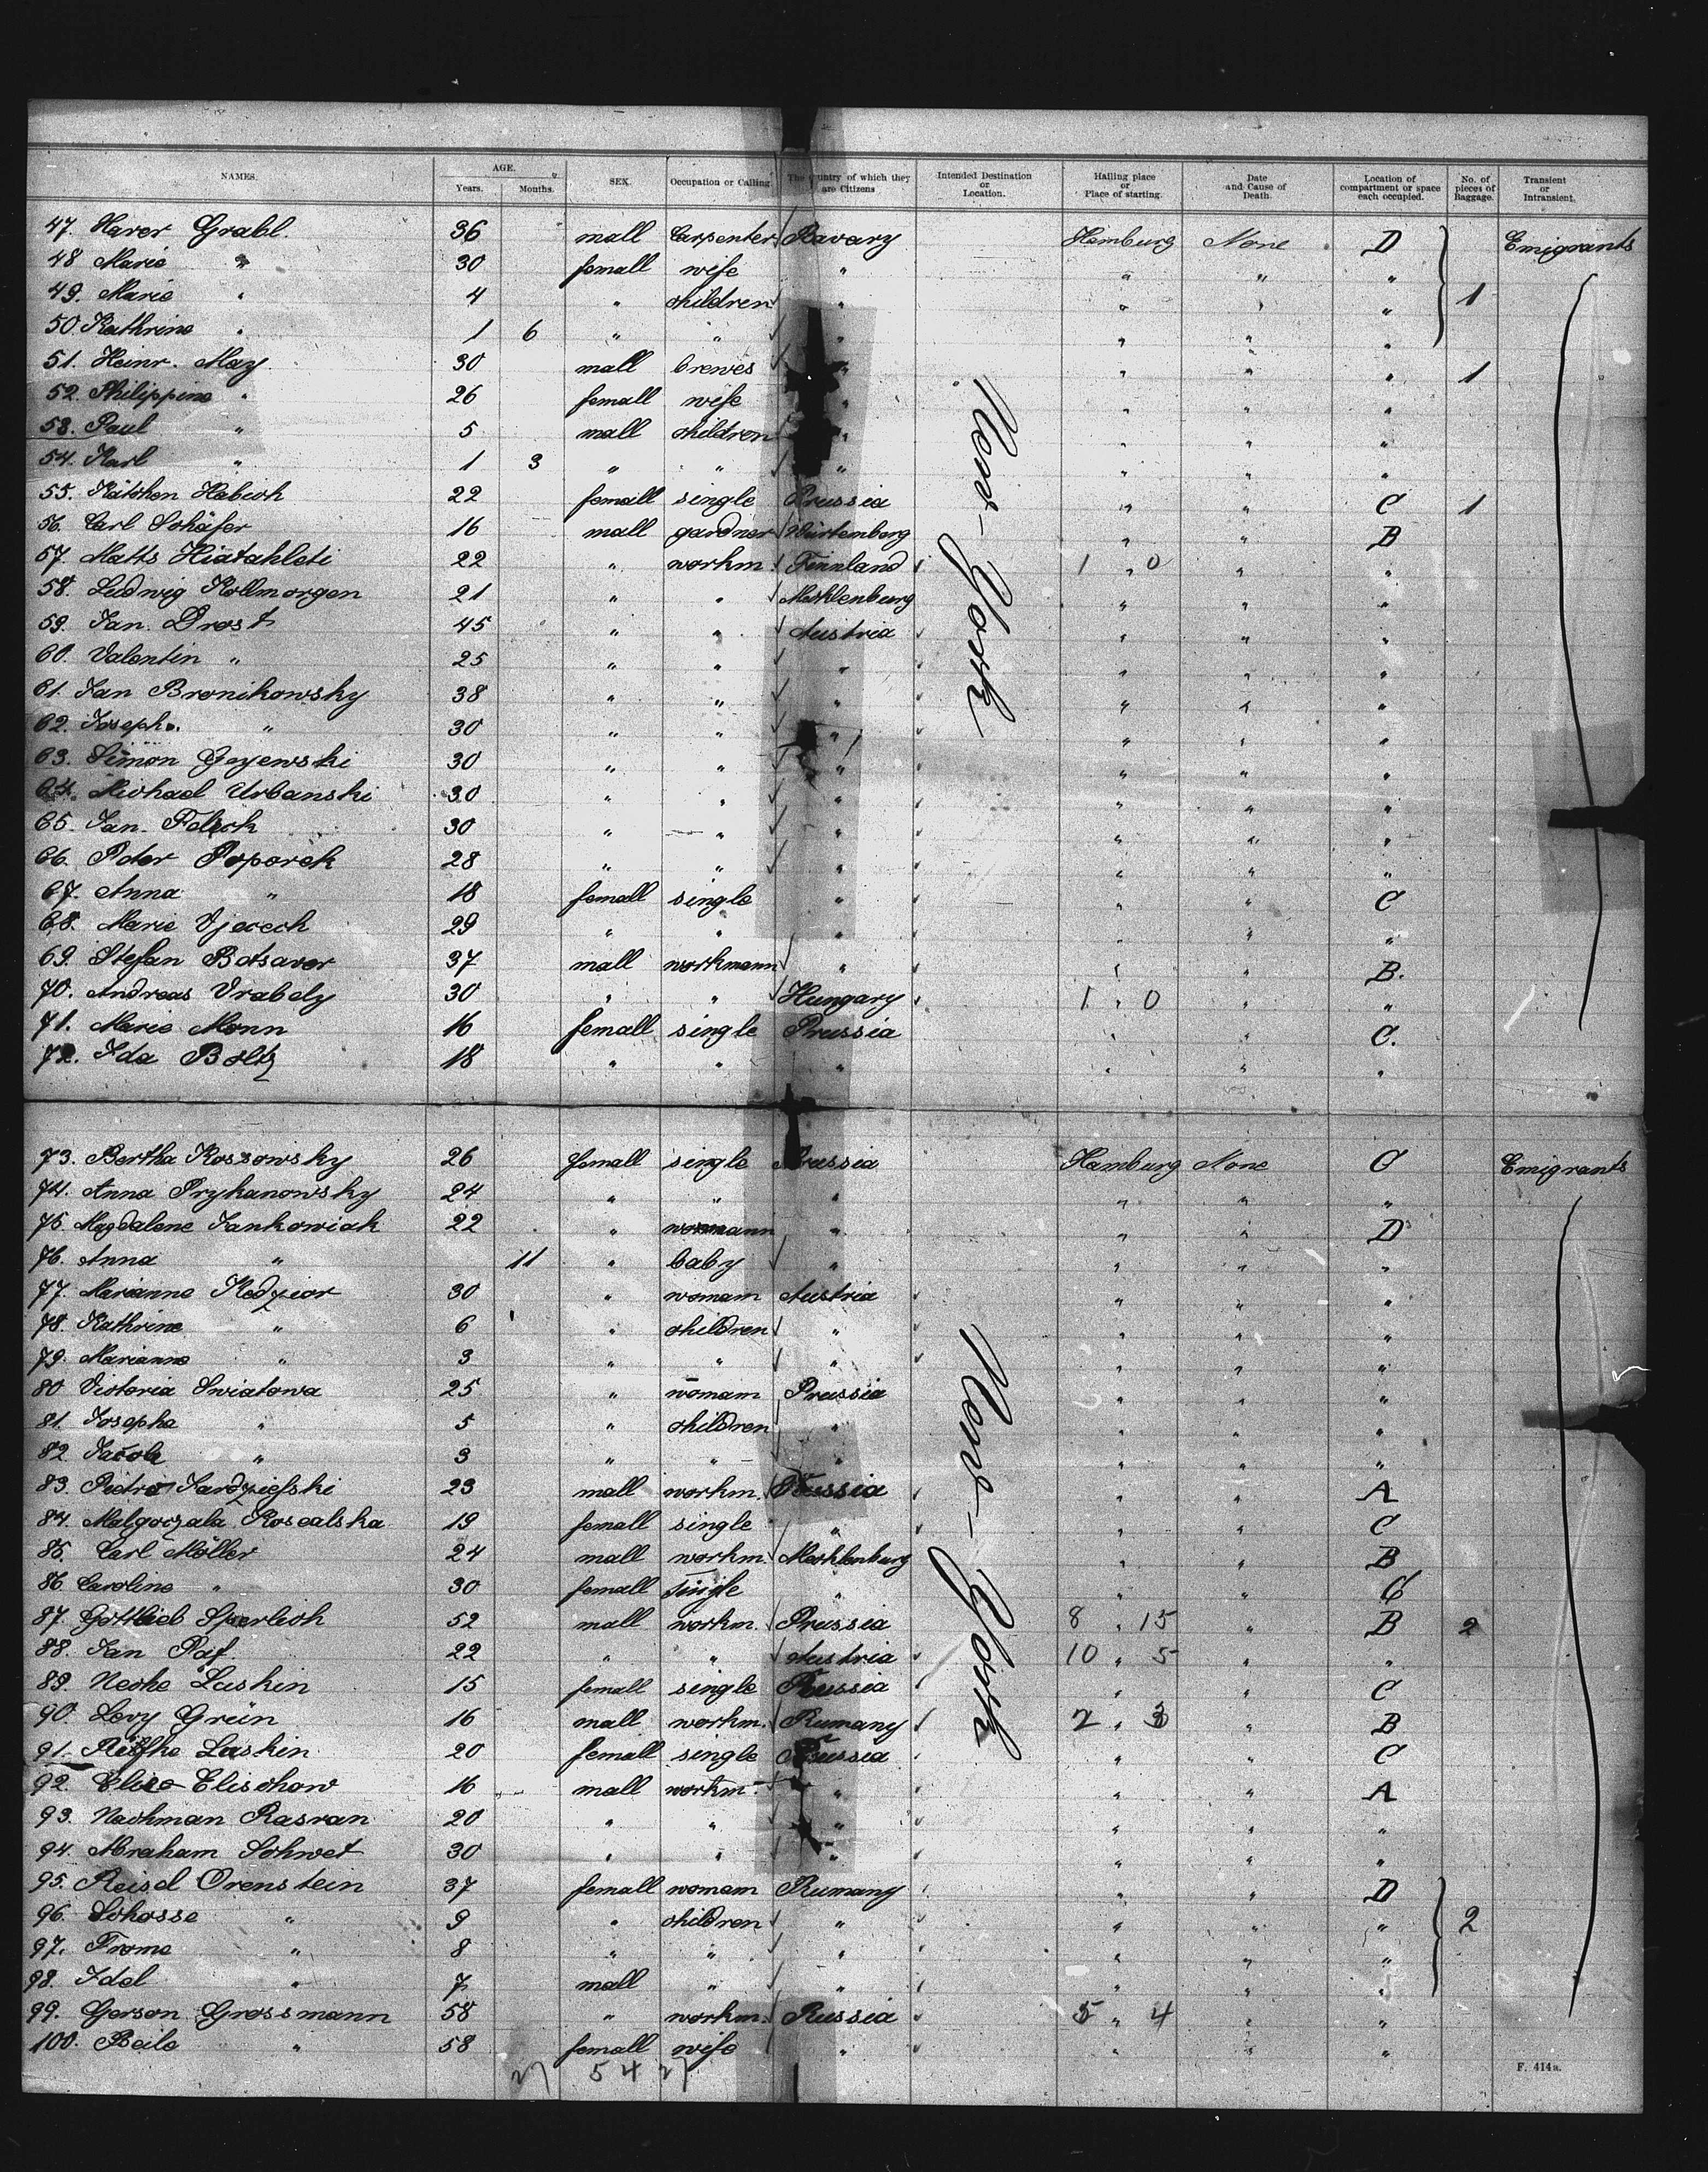 NAMES. AGE. Years. Months. SEX. Occupation or Calling The Country of which they are Citizens Intended Destination or Location. Hailing place or Place of starting. Date and Cause of Death. Location of compartment or space each occupied. No. of pieces of Baggage. Transient or Intransient.
47. Xaver Grabl. 36 mall Carpenter Bavary Hamburg None D Emigrants
48 Marie " 30 femall wife " " " "
49. Marie " 4 " children " " " " 1
50. Kathrine " 1 6 " " " " " "
51. Heinr. May 30 mall brewes " " " " 1
52. Philippine " 26 femall wife " " " "
53. Paul " 5 mall children " " " "
54. Karl " 1 3 " " " " " "
55. Kätchen Habich 22 femall single Prussia " " C 1
56. Carl Schäfer 16 mall gardner Würtemberg " " B
57. Matts Hiatahleti 22 " workm. Finnland 1 " 0 " "
58. Ludwig Kollmorgen 21 " " Mecklenburg " " "
59. Jan. Drost 45 " " Austria " " "
60. Valentin " 25 " " " " " "
61. Jan Bronikowsky 38 " " " " " "
62. Joseph. " 30 " " " " " "
63. Simon Gryewski 30 " " " " " "
64. Michael Urbanski 30 " " " " " "
65. Jan. Folsch 30 " " " " " "
66. Peter Poporek 28 " " " " " "
67. Anna " 18 femall single " " " C
68. Marie Vjecech 29 " " " " " "
69. Stefan Botsaver 37 mall workmann " " " B.
70. Andreas Vrabely 30 " " Hungary 1 " 0 " "
71. Marie Monn 16 femall single Prussia " " C.
72. Ida Boltz 18 " " " " " "
New-York
73. Bertha Rossowsky 26 femall single Prussia Hamburg None C Emigrants
74. Anna Prykanowsky 24 " " " " " "
75. Magdalene Jankowiak 22 " " " " D
76. Anna " 11 " baby " " " "
77. Marianne Kedzior 30 " womam Austria " " "
78. Kathrine " 6 " children " " " "
79. Marianne " 3 " " " " " "
80 Victoria Swiatowa 25 " womam Prussia " " "
81. Josepha " 5 " children " " " "
82 Jacob " 3 " " " " " "
83. Pietro Jardziefski 23 mall workm. Russia " " A
84. Malgorzala Roscalska 19 femall single " " " C
85. Carl Möller 24 mall workm. Mecklenburg " " B
86. Caroline " 30 femall single " " " C
87. Gottlieb Sperlich 52 mall workm. Prussia 8 " 15 " B 2
88. Jan Paf 22 " " Austria 10 " 5 " "
89. Neche Laskin 15 femall single Russia " " C
90. Levy Grün 16 mall workm. Rumany 2 " 3 " B
91. Laskin 20 femall single Russia " " C
92. Elischow 16 mall workm. " " " A
93. Nachman Rasran 20 " " " " " "
94. Abraham Schwet 30 " " " " " "
95. Reisel Orenstein 37 femall womam Rumany " " D
96. Schosse " 9 " children " " " " 2
97. Frome " 8 " " " " " "
98. Idel " 7 mall " " " " "
99. Gerson Grossmann 58 " workm. Russia 5 " 4 " "
100. Beile " 58 femall wife " " " "
New-York
27 54 27
F. 414a.